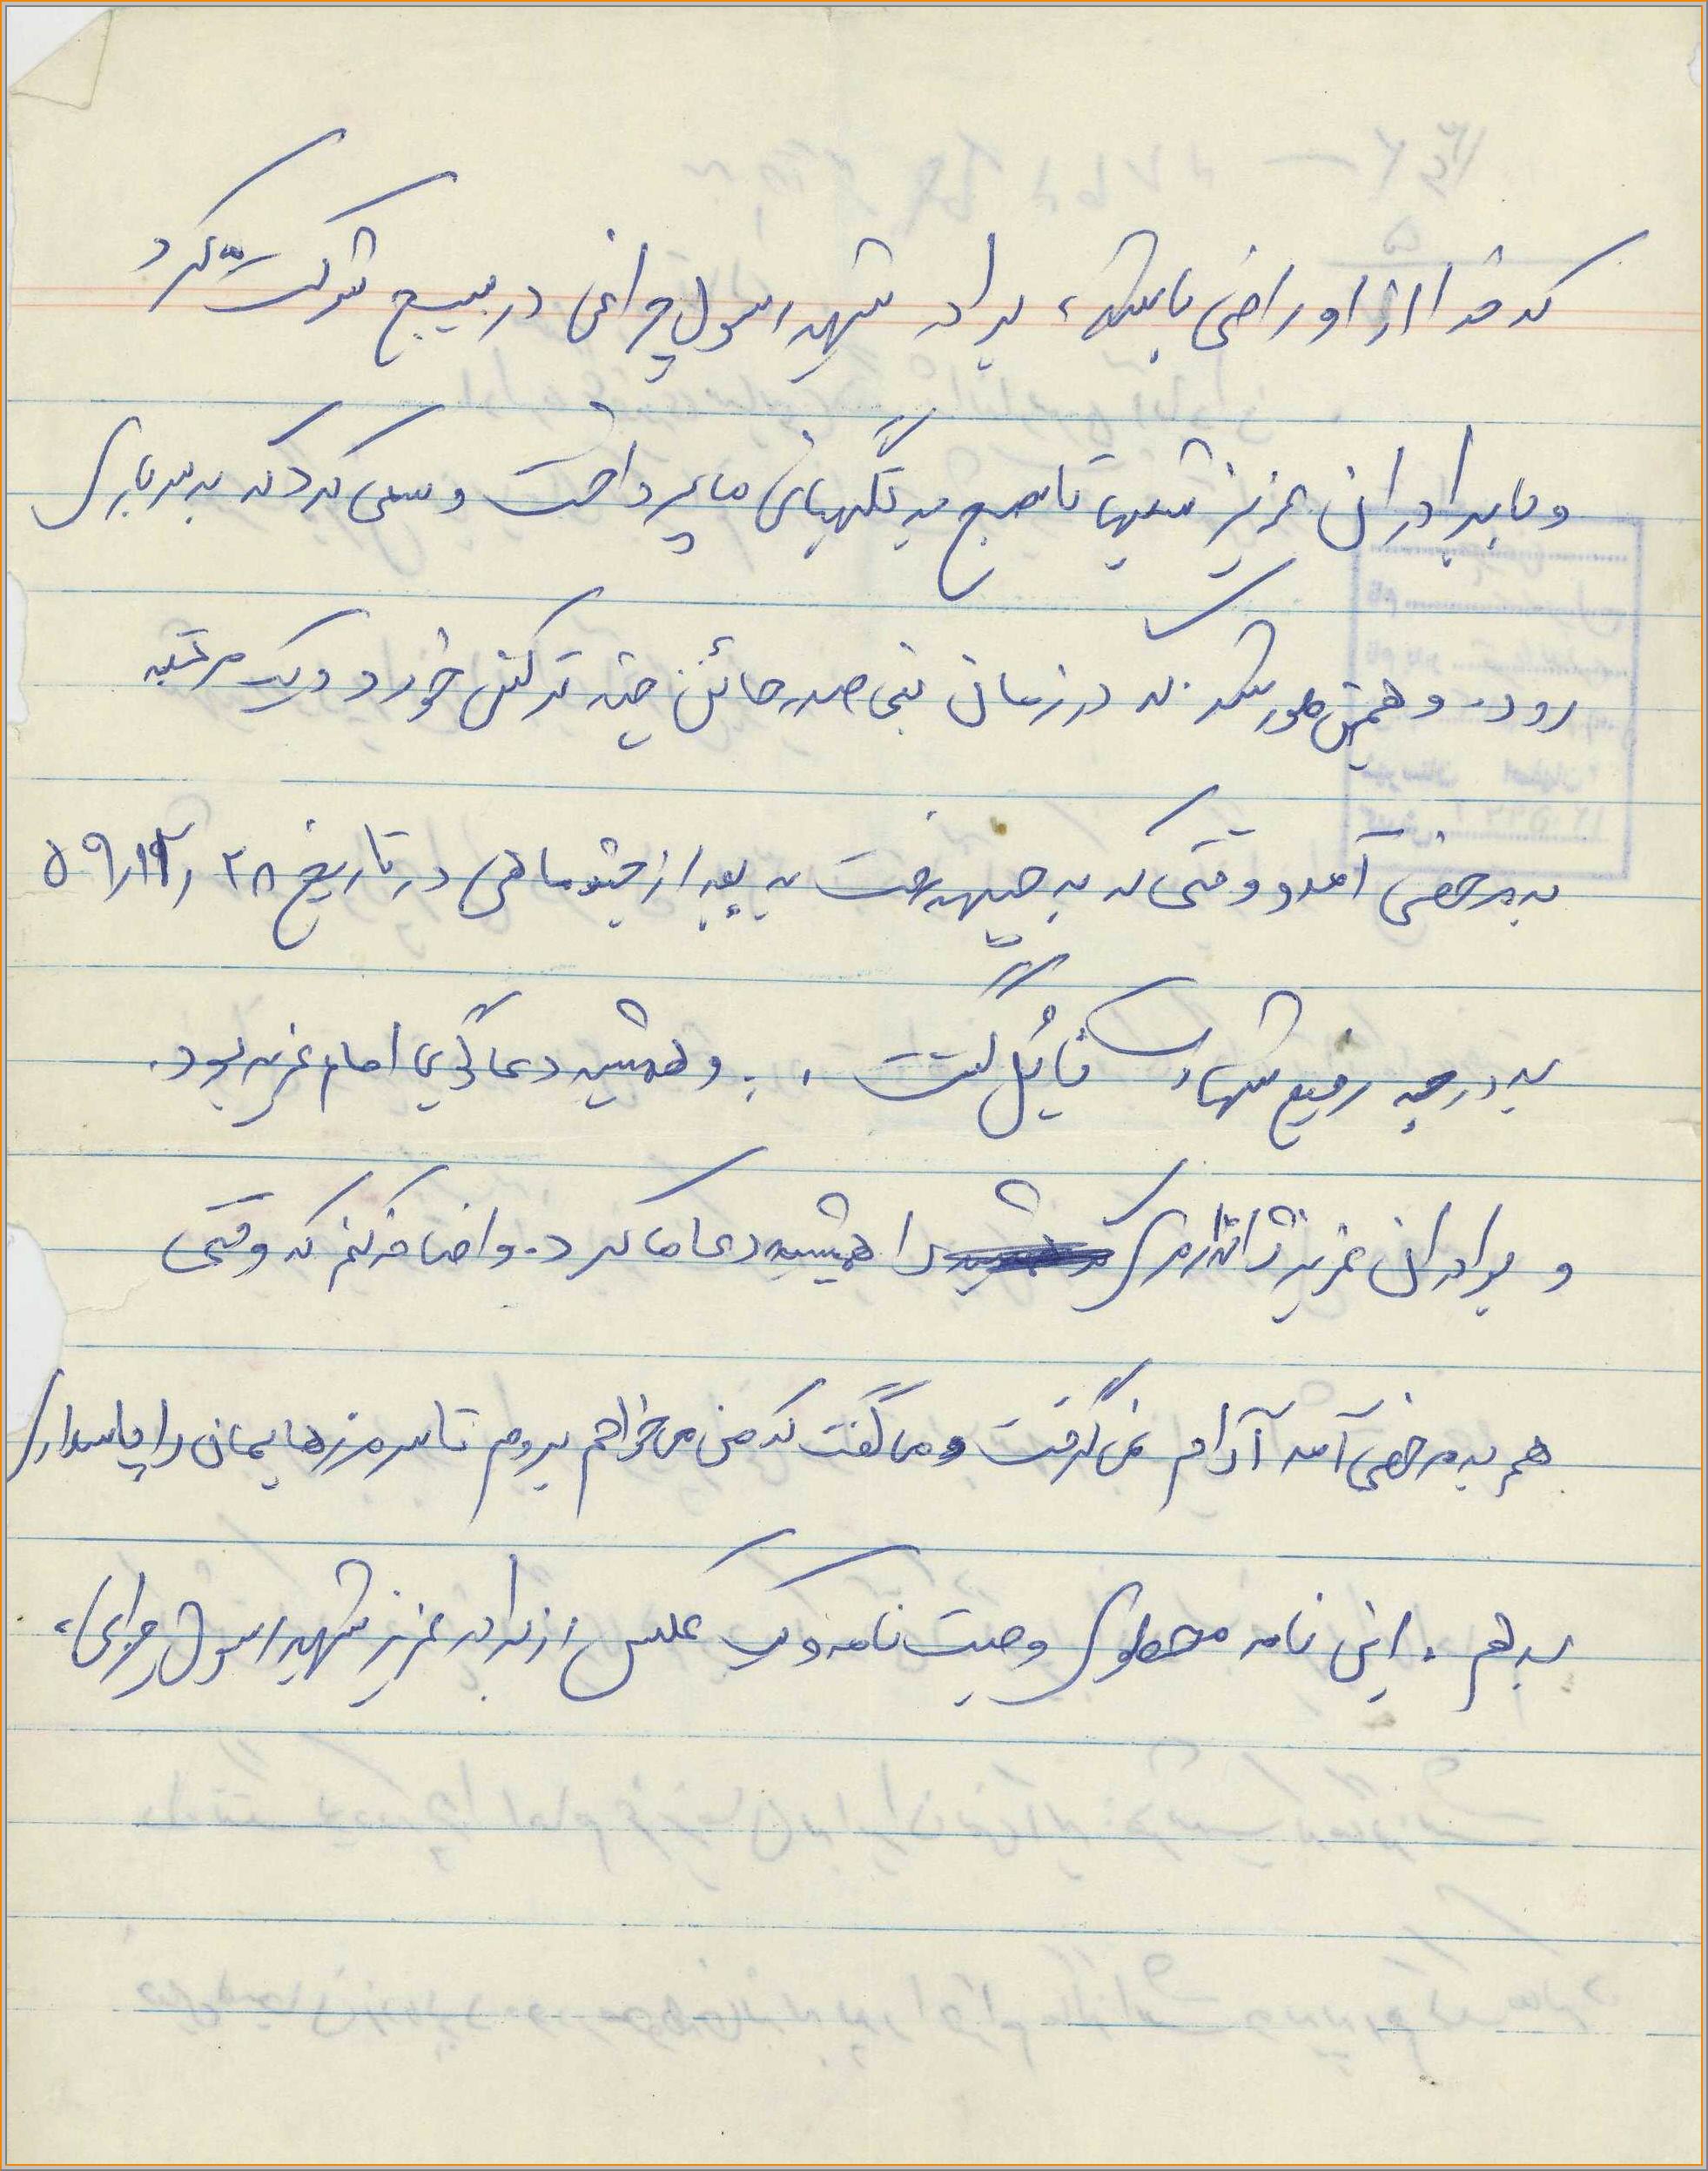 که خدا از او راضی باشد، برادر شهید رسول چراغی در بسیج شرکت کرد
و با برادران عزیز شبها تا صبح به نگهبانی می پرداخت و سعی کرد که به سربازی
رود. و همین طور شد که در زمان بنی صدر خائن چند ترکش خورد و یک مرتبه
به مرخصی آمد و وقتی که به جبهه رفت به بعد از چند ماهی در تاریخ ۵۹/۱۲/۲۸
به درجه رفیع شهادت نائل گشت . و همیشه دعاگوی امام عزیز بود.
و برادران عزیز ژاندارمری را همیشه دعا می کرد. و اضافه کنم که وقتی
هم به مرخصی آمد آرام نمی گرفت و می گفت که من می خواهم بروم تا سر مرزهایمان را پاسداری
بدهم . این نامه محتوی وصیت نامه و یک عکس از برادر عزیز شهید رسول چراغی،